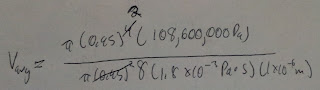 2
V_avg = π(0.45)^4 (108,600,000 Pa)
π(0.45)^2 8 (1.8 x10^-3 Pa·s) (1x10^-6 m)